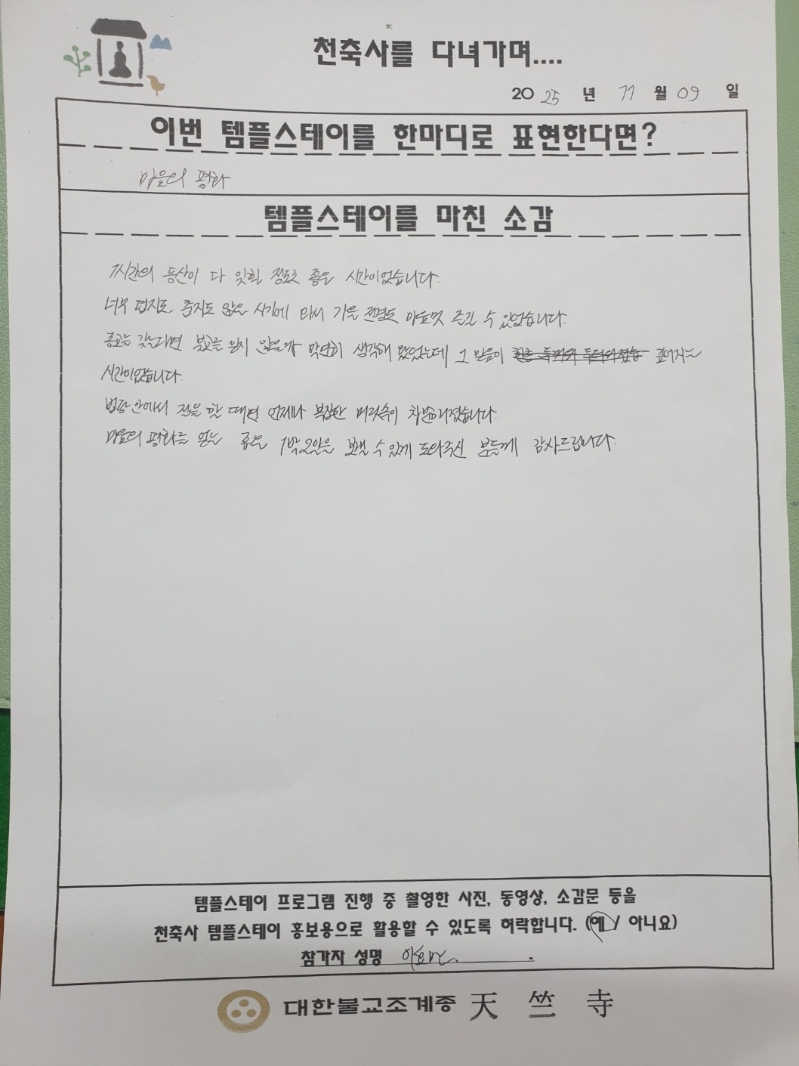 천축사를 다녀가며....
2025 년 11 월 09 일
이번 템플스테이를 한마디로 표현한다면?
마음의 평화
템플스테이를 마친 소감
7시간의 등산이 다 잊힐 정도로 좋은 시간이었습니다.
너무 덥지도, 춥지도 않은 시기에 와서 가을 전경도 마음껏 즐길 수 있었습니다.
종교를 갖는다면 불교를 믿지 않을까 막연히 생각해 왔었는데 그 믿음이 깊어지는
시간이었습니다.
법당 안에서 절을 할 때면 언제나 복잡한 머릿속이 차분해졌습니다.
마음의 평화를 얻는 좋은 1박2일을 보낼 수 있게 도와주신 분들께 감사드립니다.
템플스테이 프로그램 진행 중 촬영한 사진, 동영상, 소감문 등을
천축사 템플스테이 홍보용으로 활용할 수 있도록 허락합니다. (예 / 아니요)
참가자 성명
대한불교조계종 天竺寺